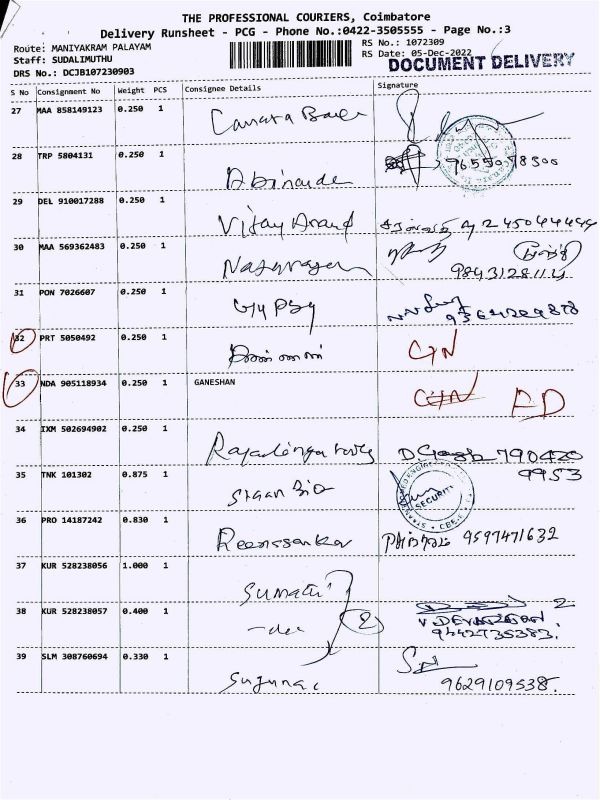 THE PROFESSIONAL COURIERS, Coimbatore
Delivery Runsheet - PCG - Phone No.:0422-3505555 - Page No.:3
Route: MANIYAKRAM PALAYAM
RS No.: 1072309
Staff: SUDALIMUTHU
RS Date: 05-Dec-2022
DRS No.: DCJB107230903
DOCUMENT DELIVERY
S No Consignment No Weight PCS Consignee Details Signature
27 MAA 858149123 0.250 1 Canara Bank
28 TRP 5804131 0.250 1 9655078500
29 DEL 910017288 0.250 1 Vijay Anand
30 MAA 569362483 0.250 1 Natarajan
31 PON 7026607 0.250 1 Gypsy
32 PRT 5050492 0.250 1
33 NDA 905118934 0.250 1 GANESHAN
34 IXM 502694902 0.250 1 790420
35 TNK 101302 0.875 1 Staan Bio 9953
SECURITY
36 PRO 14187242 0.830 1 9597471632
37 KUR 528238056 1.000 1 Sumathi
38 KUR 528238057 0.400 1 -do- 2
9442735383.
39 SLM 308760694 0.330 1 Suguna
9629109538.